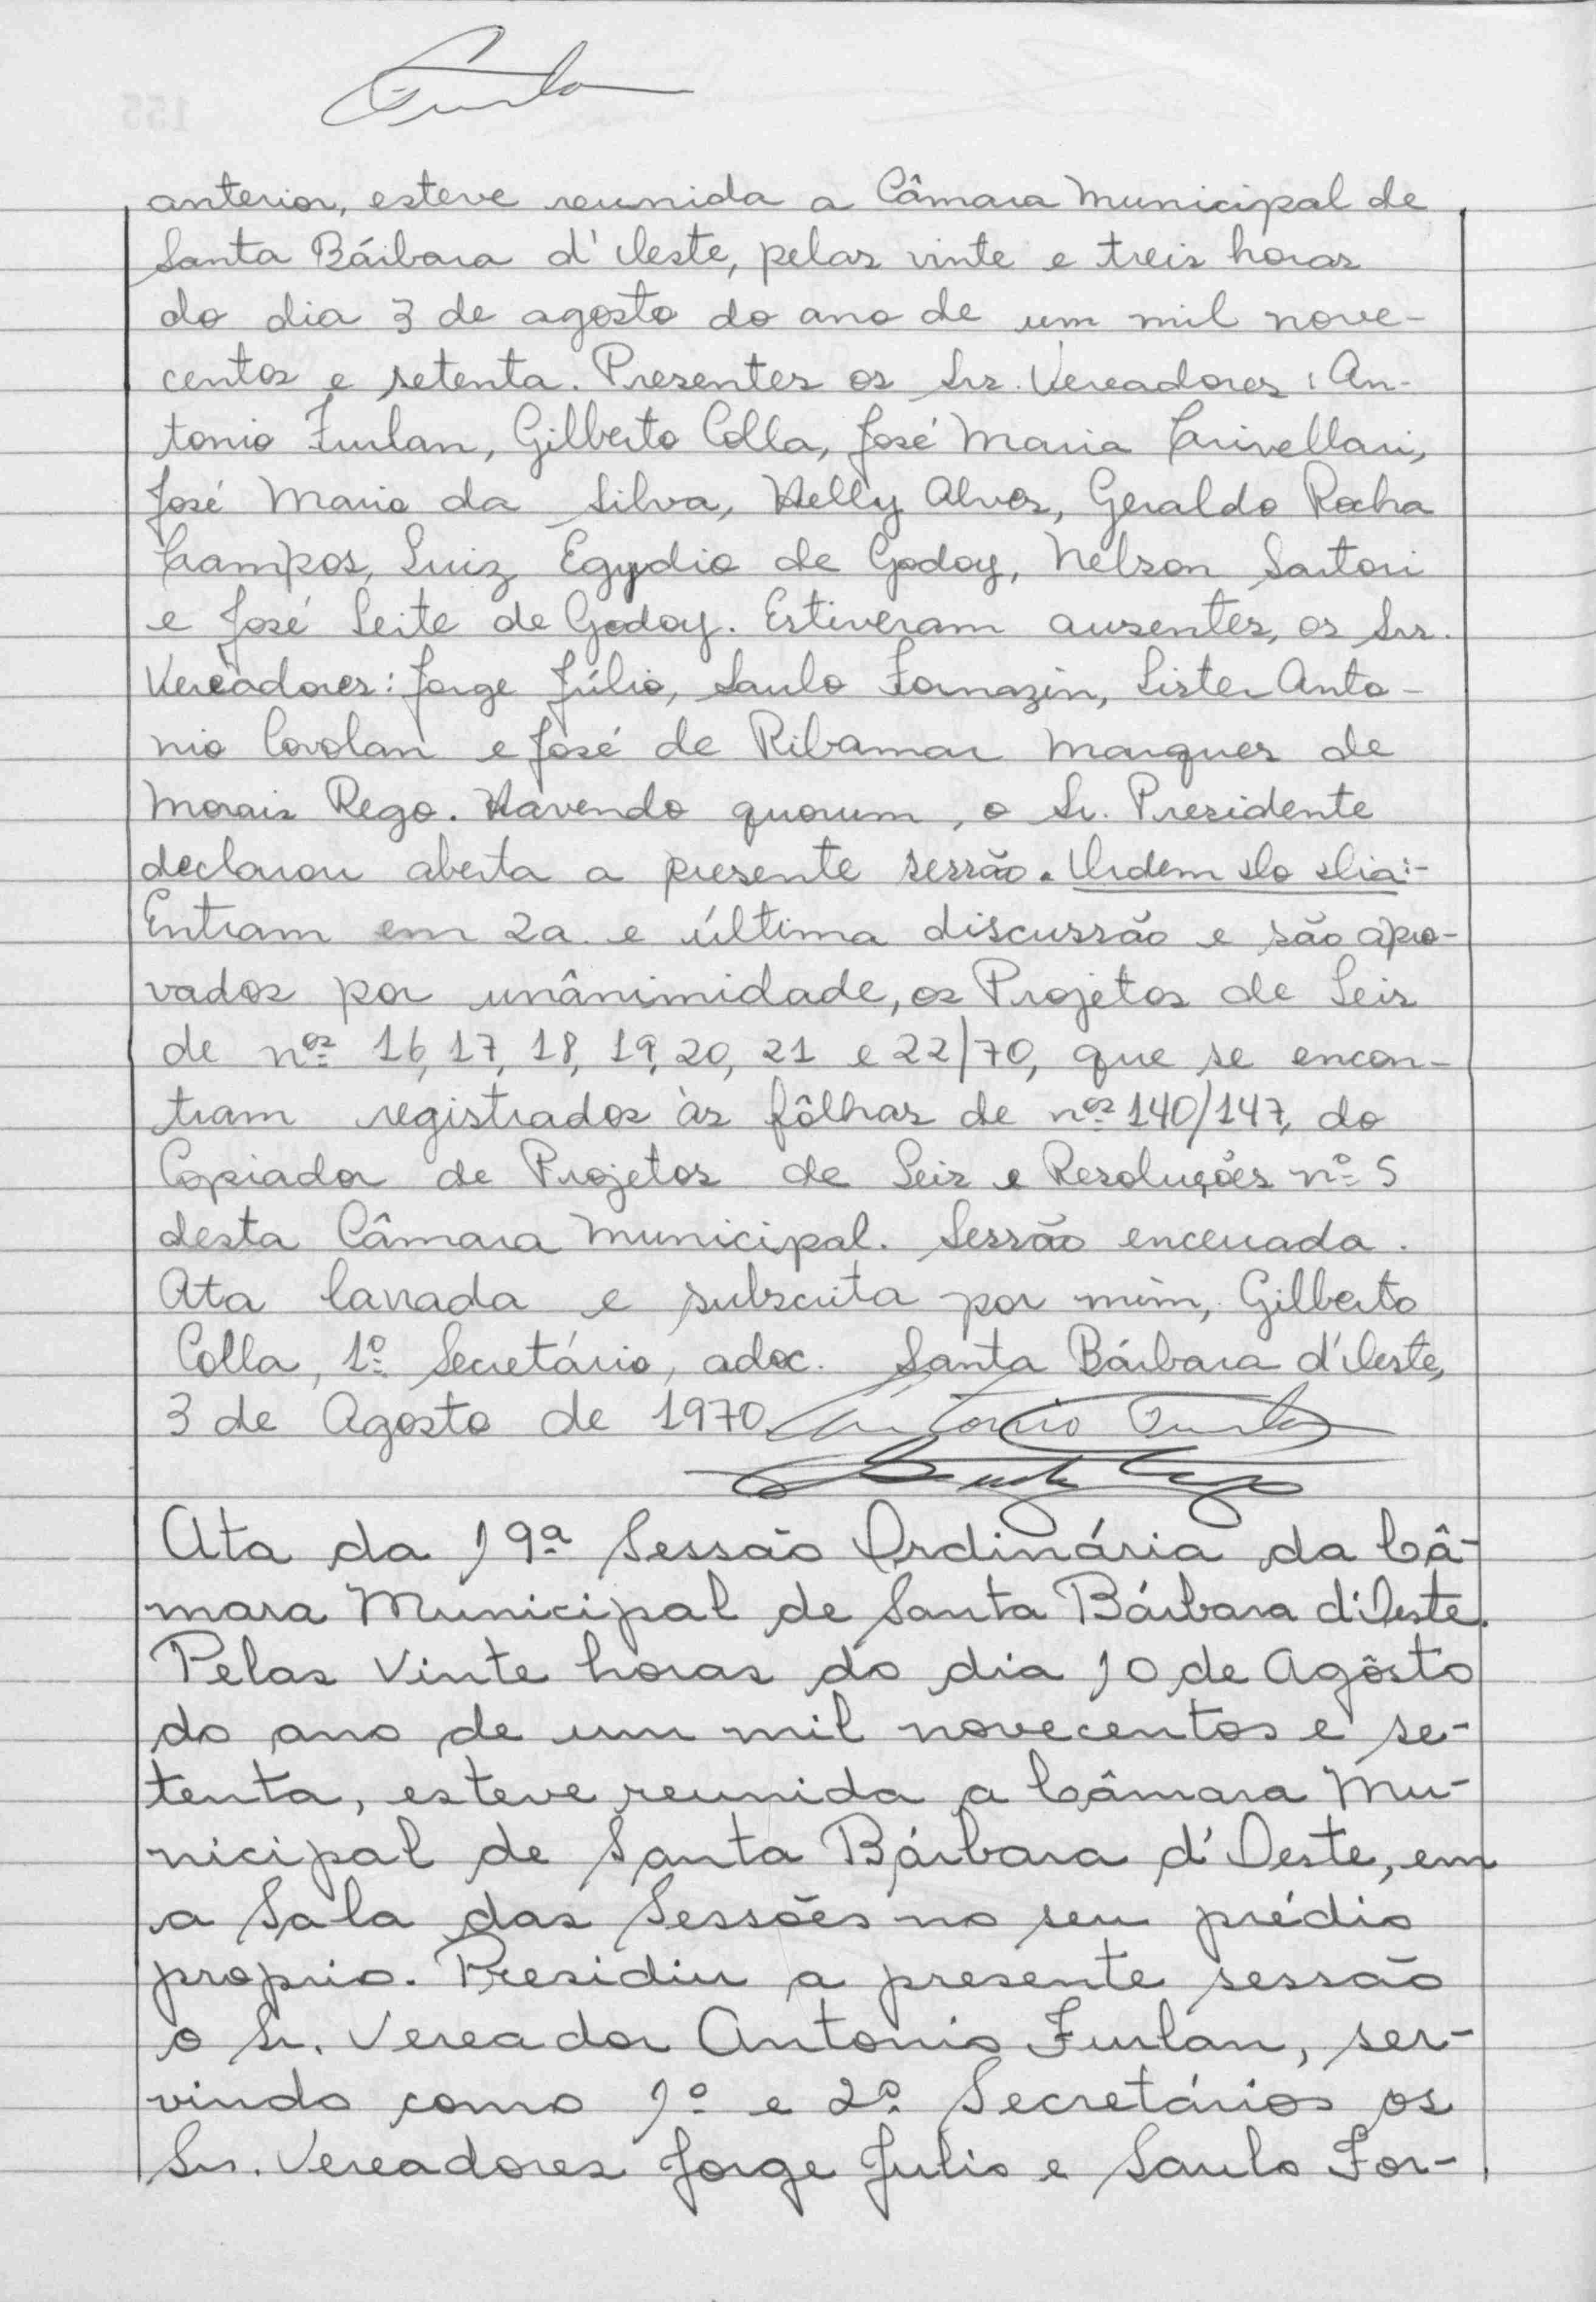 Furlan
anterior, esteve reunida a Câmara Municipal de
Santa Bárbara d'Oeste, pelas vinte e treis horas
do dia 3 de agosto do ano de um mil nove-
centos e setenta. Presentes os Srs. Vereadores: An-
tonio Furlan, Gilberto Colla, José Maria Crivellari,
José Mario da Silva, Helly Alves, Geraldo Rocha
Campos, Luiz Egydio de Godoy, Nelson Sartori
e José Leite de Godoy. Estiveram ausentes, os Srs.
Vereadores: Jorge Júlio, Saulo Fornazin, Lister Anto-
nio Covolan e José de Ribamar Marques de
Morais Rego. Havendo quorum, o Sr. Presidente
declarou aberta a presente sessão. Ordem do dia:-
Entram em 2a. e última discussão e são apro-
vados por unânimidade, os Projetos de Leis
de nºs 16, 17, 18, 19, 20, 21 e 22/70, que se encon-
tram registrados às fôlhas de nºs 140/147, do
Copiador de Projetos de Leis e Resoluções nº 5
desta Câmara Municipal. Sessão encerrada.
Ata lavrada e subscrita por mim, Gilberto
Colla, 1º Secretário, adoc. Santa Bárbara d'Oeste,
3 de Agosto de 1970. Antonio Furlan
Ata da 19ª Sessão Ordinária da Câ-
mara Municipal de Santa Bárbara d'Oeste.
Pelas Vinte horas do dia 10 de Agôsto
do ano de um mil novecentos e se-
tenta, esteve reunida a Câmara Mu-
nicipal de Santa Bárbara d'Oeste, em
a Sala das Sessões no seu prédio
proprio. Presidiu a presente sessão
o Sr. Vereador Antonio Furlan, ser-
vindo como 1º e 2º Secretários os
Srs. Vereadores Jorge Julio e Saulo For-